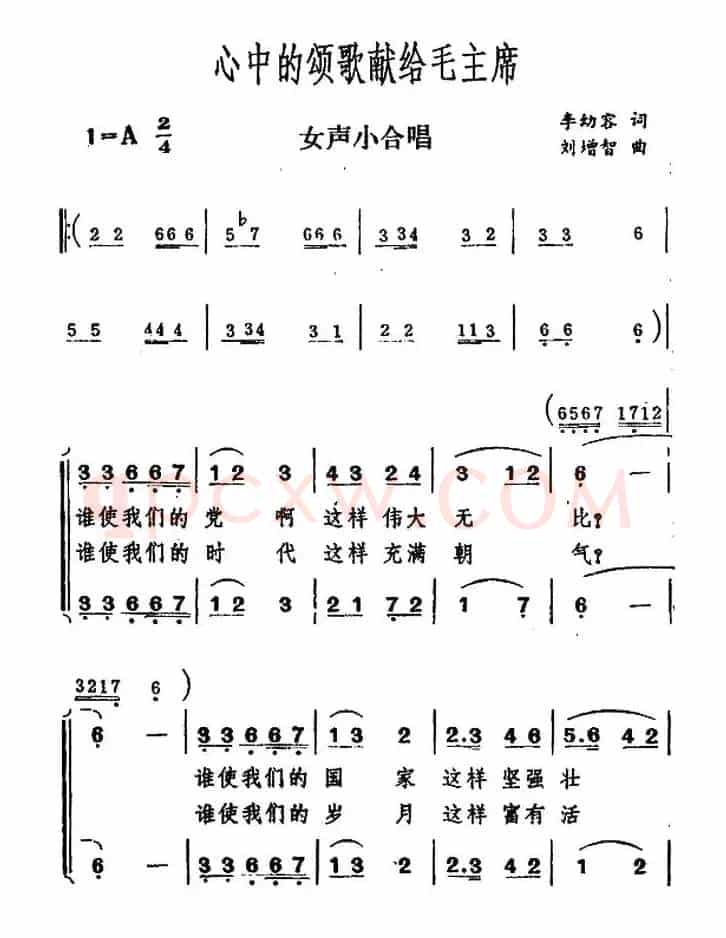 心中的颂歌献给毛主席
1=A 2/4
女声小合唱
李幼容 词
刘增智 曲
2 2 666 | 5 ♭7 666 | 3 34 3 2 | 3 3 6
5 5 444 | 3 34 3 1 | 2 2 113 | 6 6 6 )
(6567 1712
3 3 6 6 7 | 1 2 3 | 4 3 2 4 | 3 1 2 | 6 —
谁使我们的党啊这样伟大无比?
谁使我们的时代这样充满朝气?
3 3 6 6 7 | 1 2 3 | 2 1 7 2 | 1 7 | 6 —
3217 6 )
6 — | 3 3 6 6 7 | 1 3 2 | 2.3 4 6 | 5.6 4 2
谁使我们的国家这样坚强壮
谁使我们的岁月这样富有活
6 — | 3 3 6 6 7 | 1 3 2 | 2.3 4 2 | 1 2
qpcxw.com